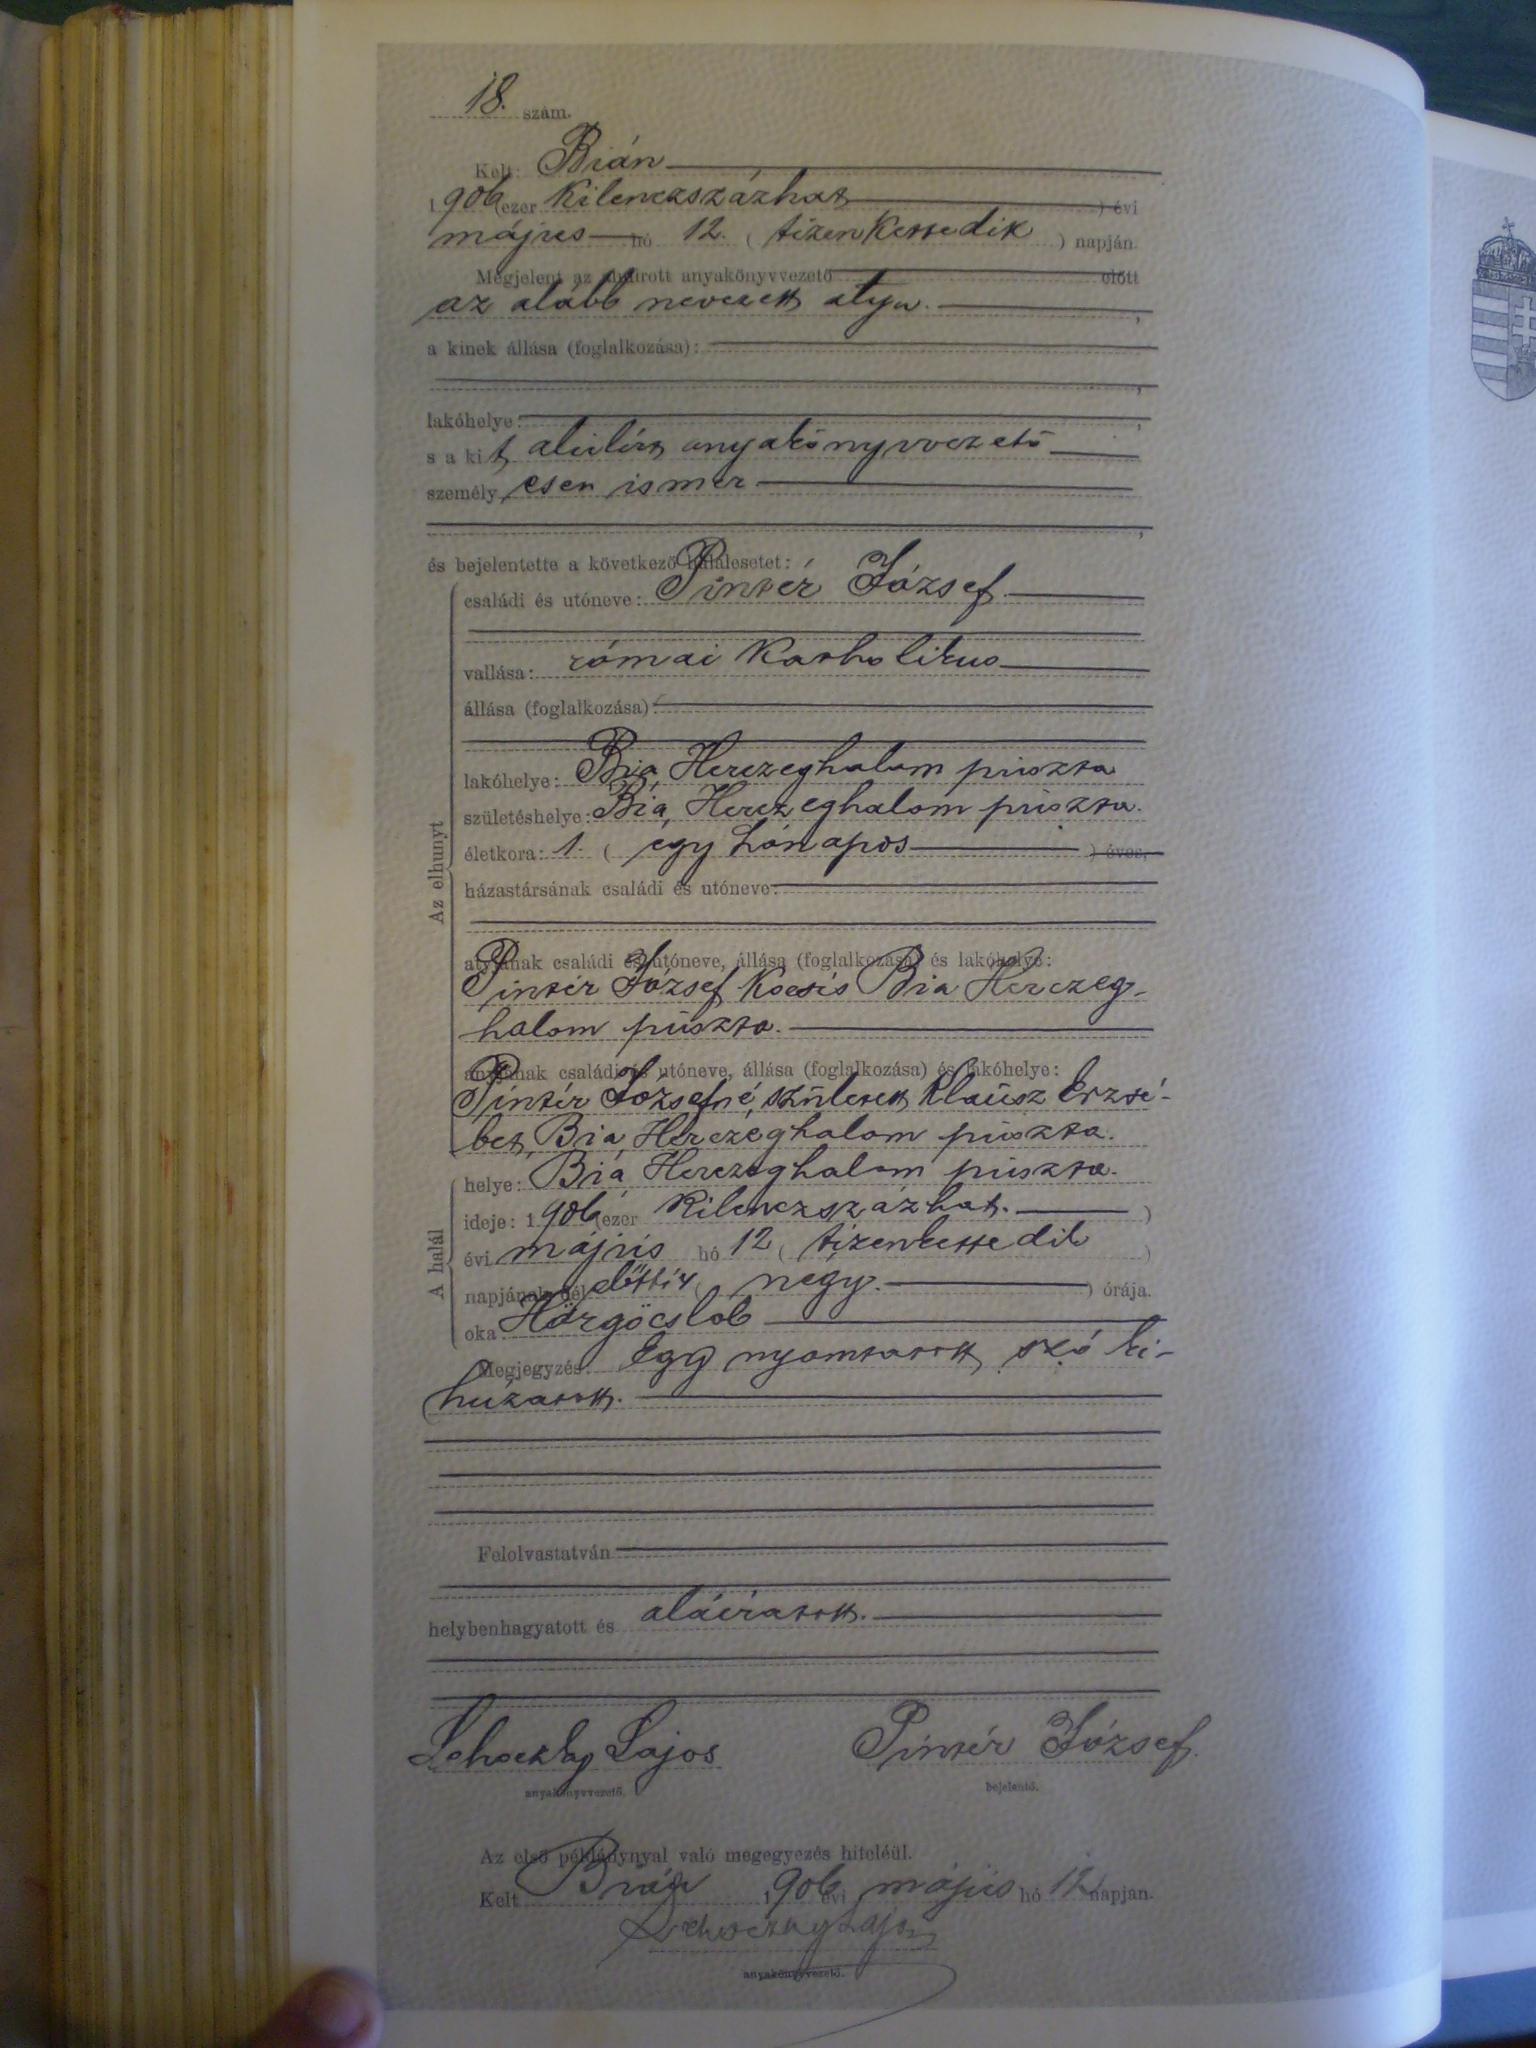 18. szám.
Kelt: Bián
1906 (ezer kilenczszázhat ) évi
május hó 12. ( tizenkettedik ) napján.
Megjelent az alulirott anyakönyvvezető előtt
az alább nevezett atya.
a kinek állása (foglalkozása):
lakóhelye:
s a kit alulírt anyakönyvvezető
személyesen ismer
és bejelentette a következő halálesetet:
Az elhunyt
családi és utóneve: Pintér József
vallása: római katholikus
állása (foglalkozása):
lakóhelye: Bia, Herczeghalom puszta
születéshelye: Bia, Herczeghalom puszta.
életkora: 1. ( egy hónapos ) éves,
házastársának családi és utóneve:
atyjának családi és utóneve, állása (foglalkozása) és lakóhelye:
Pintér József kocsis Bia Herczeg-
halom puszta.
anyjának családi és utóneve, állása (foglalkozása) és lakóhelye:
Pintér Józsefné, született Klausz Erzsé-
bet, Bia, Herczeghalom puszta.
A halál
helye: Bia, Herczeghalom puszta.
ideje: 1906 (ezer kilenczszázhat. )
évi május hó 12 ( tizenkettedik )
napjának dél előtti 4 ( négy. ) órája.
oka: Hörgőcslob
Megjegyzés: Egy nyomtatott szó ki-
húzatott.
Felolvastatván
helybenhagyatott és aláíratott.
Lehoczky Lajos Pintér József
anyakönyvvezető. bejelentő.
Az első példánynyal való megegyezés hiteléül.
Kelt Bián 1906 évi május hó 12 napján.
Lehoczky Lajos
anyakönyvvezető.